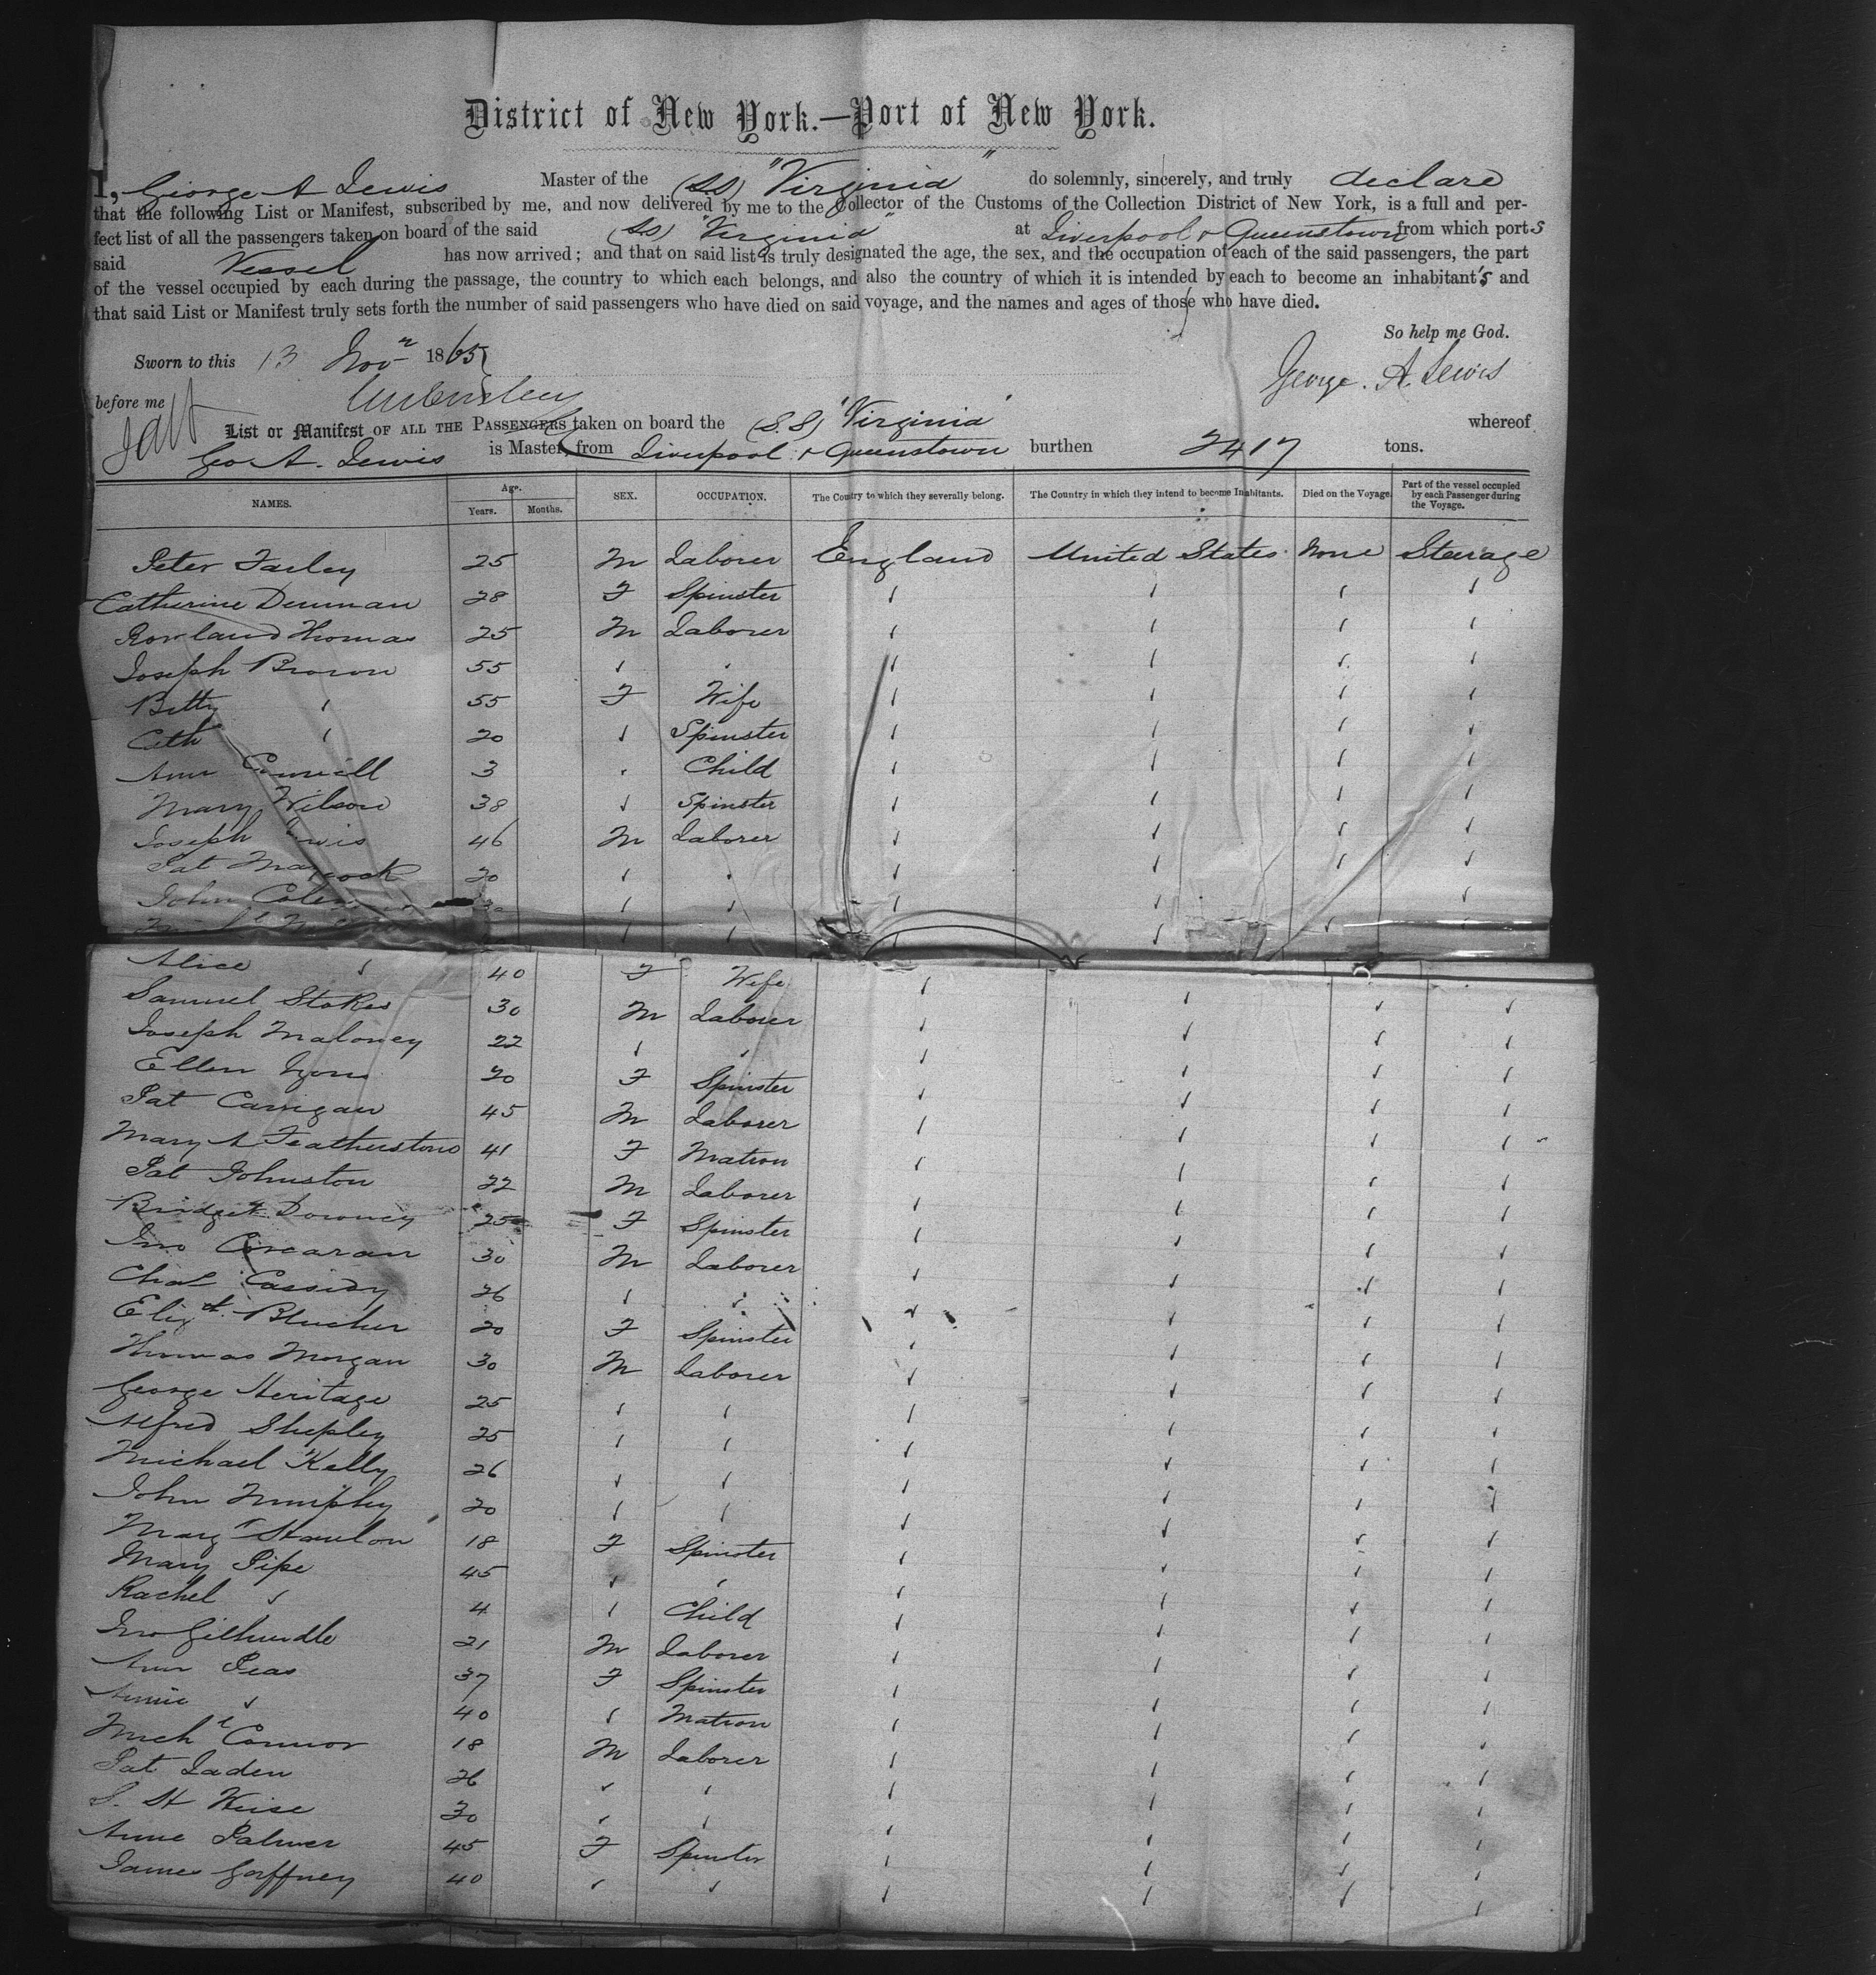 District of New York.—Port of New York.
I, George A Lewis Master of the (SS) "Virginia" do solemnly, sincerely, and truly declare
that the following List or Manifest, subscribed by me, and now delivered by me to the Collector of the Customs of the Collection District of New York, is a full and per-
fect list of all the passengers taken on board of the said (SS) "Virginia" at Liverpool & Queenstown from which ports
said Vessel has now arrived; and that on said list is truly designated the age, the sex, and the occupation of each of the said passengers, the part
of the vessel occupied by each during the passage, the country to which each belongs, and also the country of which it is intended by each to become an inhabitant's and
that said List or Manifest truly sets forth the number of said passengers who have died on said voyage, and the names and ages of those who have died.
So help me God.
Sworn to this 13 Novr 1865
George. A. Lewis
before me
List or Manifest OF ALL THE PASSENGERS taken on board the (S.S) 'Virginia' whereof
Geo A. Lewis is Master, from Liverpool & Queenstown burthen 2417 tons.
NAMES. Age. Years. Months. SEX. OCCUPATION. The Country to which they severally belong. The Country in which they intend to become Inhabitants. Died on the Voyage. Part of the vessel occupied by each Passenger during the Voyage.
Peter Farley 25 M Laborer England United States None Steerage
Catherine Denman 28 F Spinster
Rowland Thomas 25 M Laborer
Joseph Brown 55
Betty 55 F Wife
Cath 20 Spinster
Ann 3 Child
Mary Wilson 38 Spinster
Joseph 46 M Laborer
Pat 20
John
Alice 40 F Wife
Samuel Stokes 30 M Laborer
Joseph Maloney 22
Ellen Lyons 20 F Spinster
Pat Carrigan 45 M Laborer
Mary A Featherstone 41 F Matron
Pat Johnston 22 M Laborer
Bridget Downey 25 F Spinster
Jno Corcoran 30 M Laborer
Chas Cassidy 26
Elizth Blucher 20 F Spinster
Thomas Morgan 30 M Laborer
George Heritage 25
Alfred Shepley 25
Michael Kelly 26
John Murphy 20
Margt Stanlon 18 F Spinster
Mary Pipe 45
Rachel 4 Child
Jno 21 M Laborer
Ann Peas 37 F Spinster
Annie 40 Matron
Michl Connor 18 M Laborer
Pat Laden 26
S. H Weise 30
Anne Palmer 45 F Spinster
James Gaffney 40